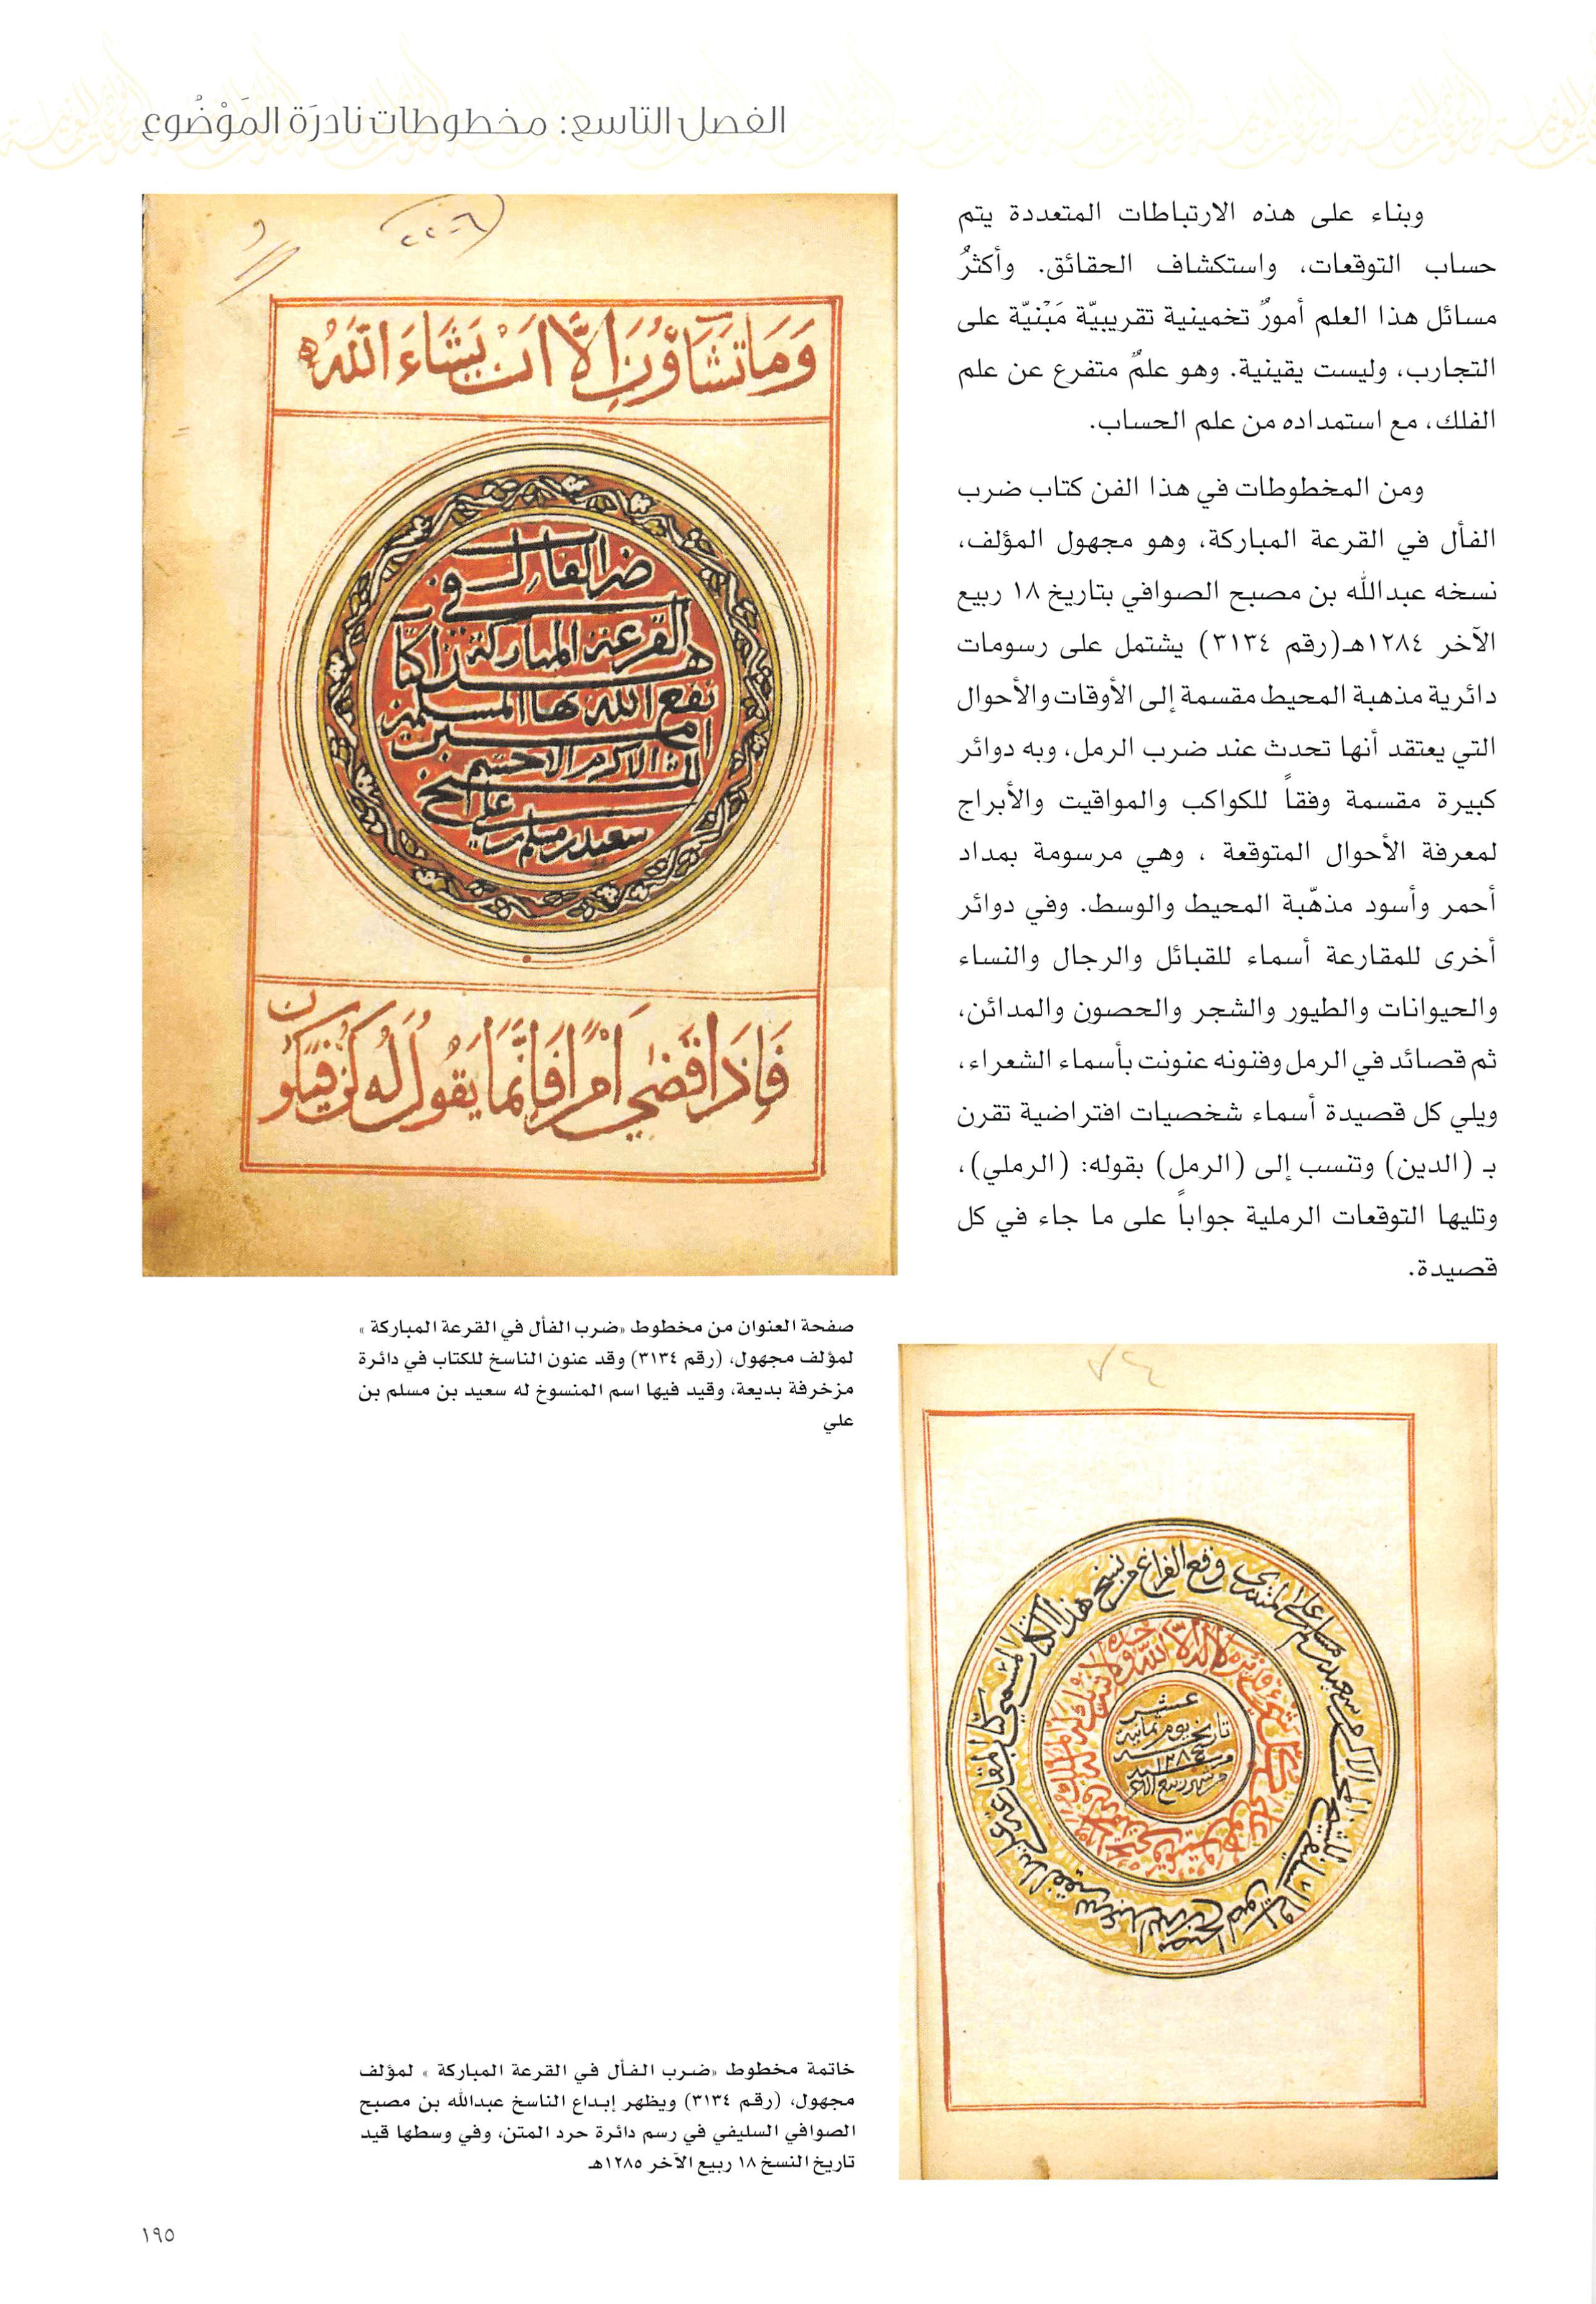 الفصل التاسع: مخطوطات نادرَة المَوْضُوع
وبناء على هذه الارتباطات المتعددة يتم
حساب التوقعات، واستكشاف الحقائق. وأكثرُ
مسائل هذا العلم أمورٌ تخمينية تقريبيّة مَبْنيّة على
التجارب، وليست يقينية. وهو علمٌ متفرع عن علم
الفلك، مع استمداده من علم الحساب.
ومن المخطوطات في هذا الفن كتاب ضرب
الفأل في القرعة المباركة، وهو مجهول المؤلف،
نسخه عبدالله بن مصبح الصوافي بتاريخ ١٨ ربيع
الآخر ١٢٨٤هـ(رقم ٣١٣٤) يشتمل على رسومات
دائرية مذهبة المحيط مقسمة إلى الأوقات والأحوال
التي يعتقد أنها تحدث عند ضرب الرمل، وبه دوائر
كبيرة مقسمة وفقاً للكواكب والمواقيت والأبراج
لمعرفة الأحوال المتوقعة ، وهي مرسومة بمداد
أحمر وأسود مذهّبة المحيط والوسط. وفي دوائر
أخرى للمقارعة أسماء للقبائل والرجال والنساء
والحيوانات والطيور والشجر والحصون والمدائن،
ثم قصائد في الرمل وفنونه عنونت بأسماء الشعراء،
ويلي كل قصيدة أسماء شخصيات افتراضية تقرن
بـ (الدين) وتنسب إلى (الرمل) بقوله: (الرملي)،
وتليها التوقعات الرملية جواباً على ما جاء في كل
قصيدة.
٢٢٠٦
وَمَا تَشَاؤُنَ اِلَّا اَنْ يَشَاءَ اللّٰهُ
ضرب الفال في
القرعة المباركة
هذا كتاب
نفع الله بها المسلمين
امين
الاكرم الاحشم
سعيد بن مسلم بن علي
فَاِذَا قَضٰى اَمْرًا فَاِنَّمَا يَقُولُ لَهُ كُنْ فَيَكُونُ
صفحة العنوان من مخطوط «ضرب الفأل في القرعة المباركة »
لمؤلف مجهول، (رقم ٣١٣٤) وقد عنون الناسخ للكتاب في دائرة
مزخرفة بديعة، وقيد فيها اسم المنسوخ له سعيد بن مسلم بن
علي
وقع الفراغ من نسخ هذا الكتاب المسمى كتاب
لا اله الا الله وحده لا شريك له
عشر
تاريخ يوم ثمانية
من شهر ربيع الاخر
خاتمة مخطوط «ضرب الفأل في القرعة المباركة » لمؤلف
مجهول، (رقم ٣١٣٤) ويظهر إبداع الناسخ عبدالله بن مصبح
الصوافي السليفي في رسم دائرة حرد المتن، وفي وسطها قيد
تاريخ النسخ ١٨ ربيع الآخر ١٢٨٥هـ
١٩٥